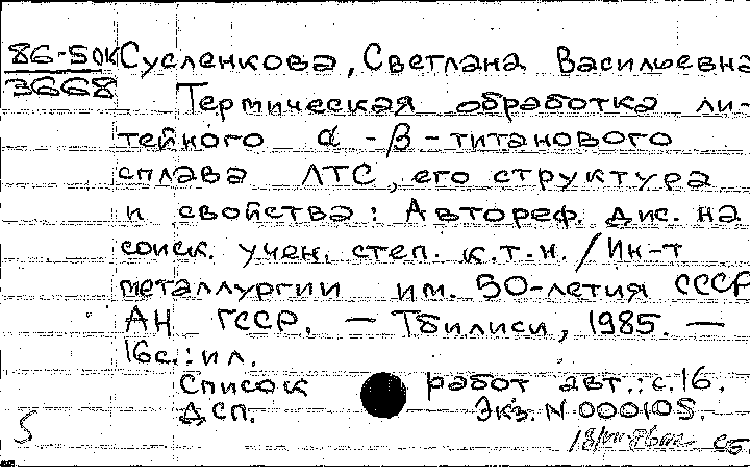 86-50К Сусленкова, Светлана Васильевна
3668
Термическая обработка ли-
тейного α-β-титанового
сплава ЛТС, его структура
и свойства: Автореф. дис. на
соиск. учен. степ. к.т.н. / Ин-т
металлургии им. 50-летия СССР
АН ГССР. — Тбилиси, 1985. —
16с.: ил.
Список работ авт.: с.16.
ДСП. Экз. N 000105.